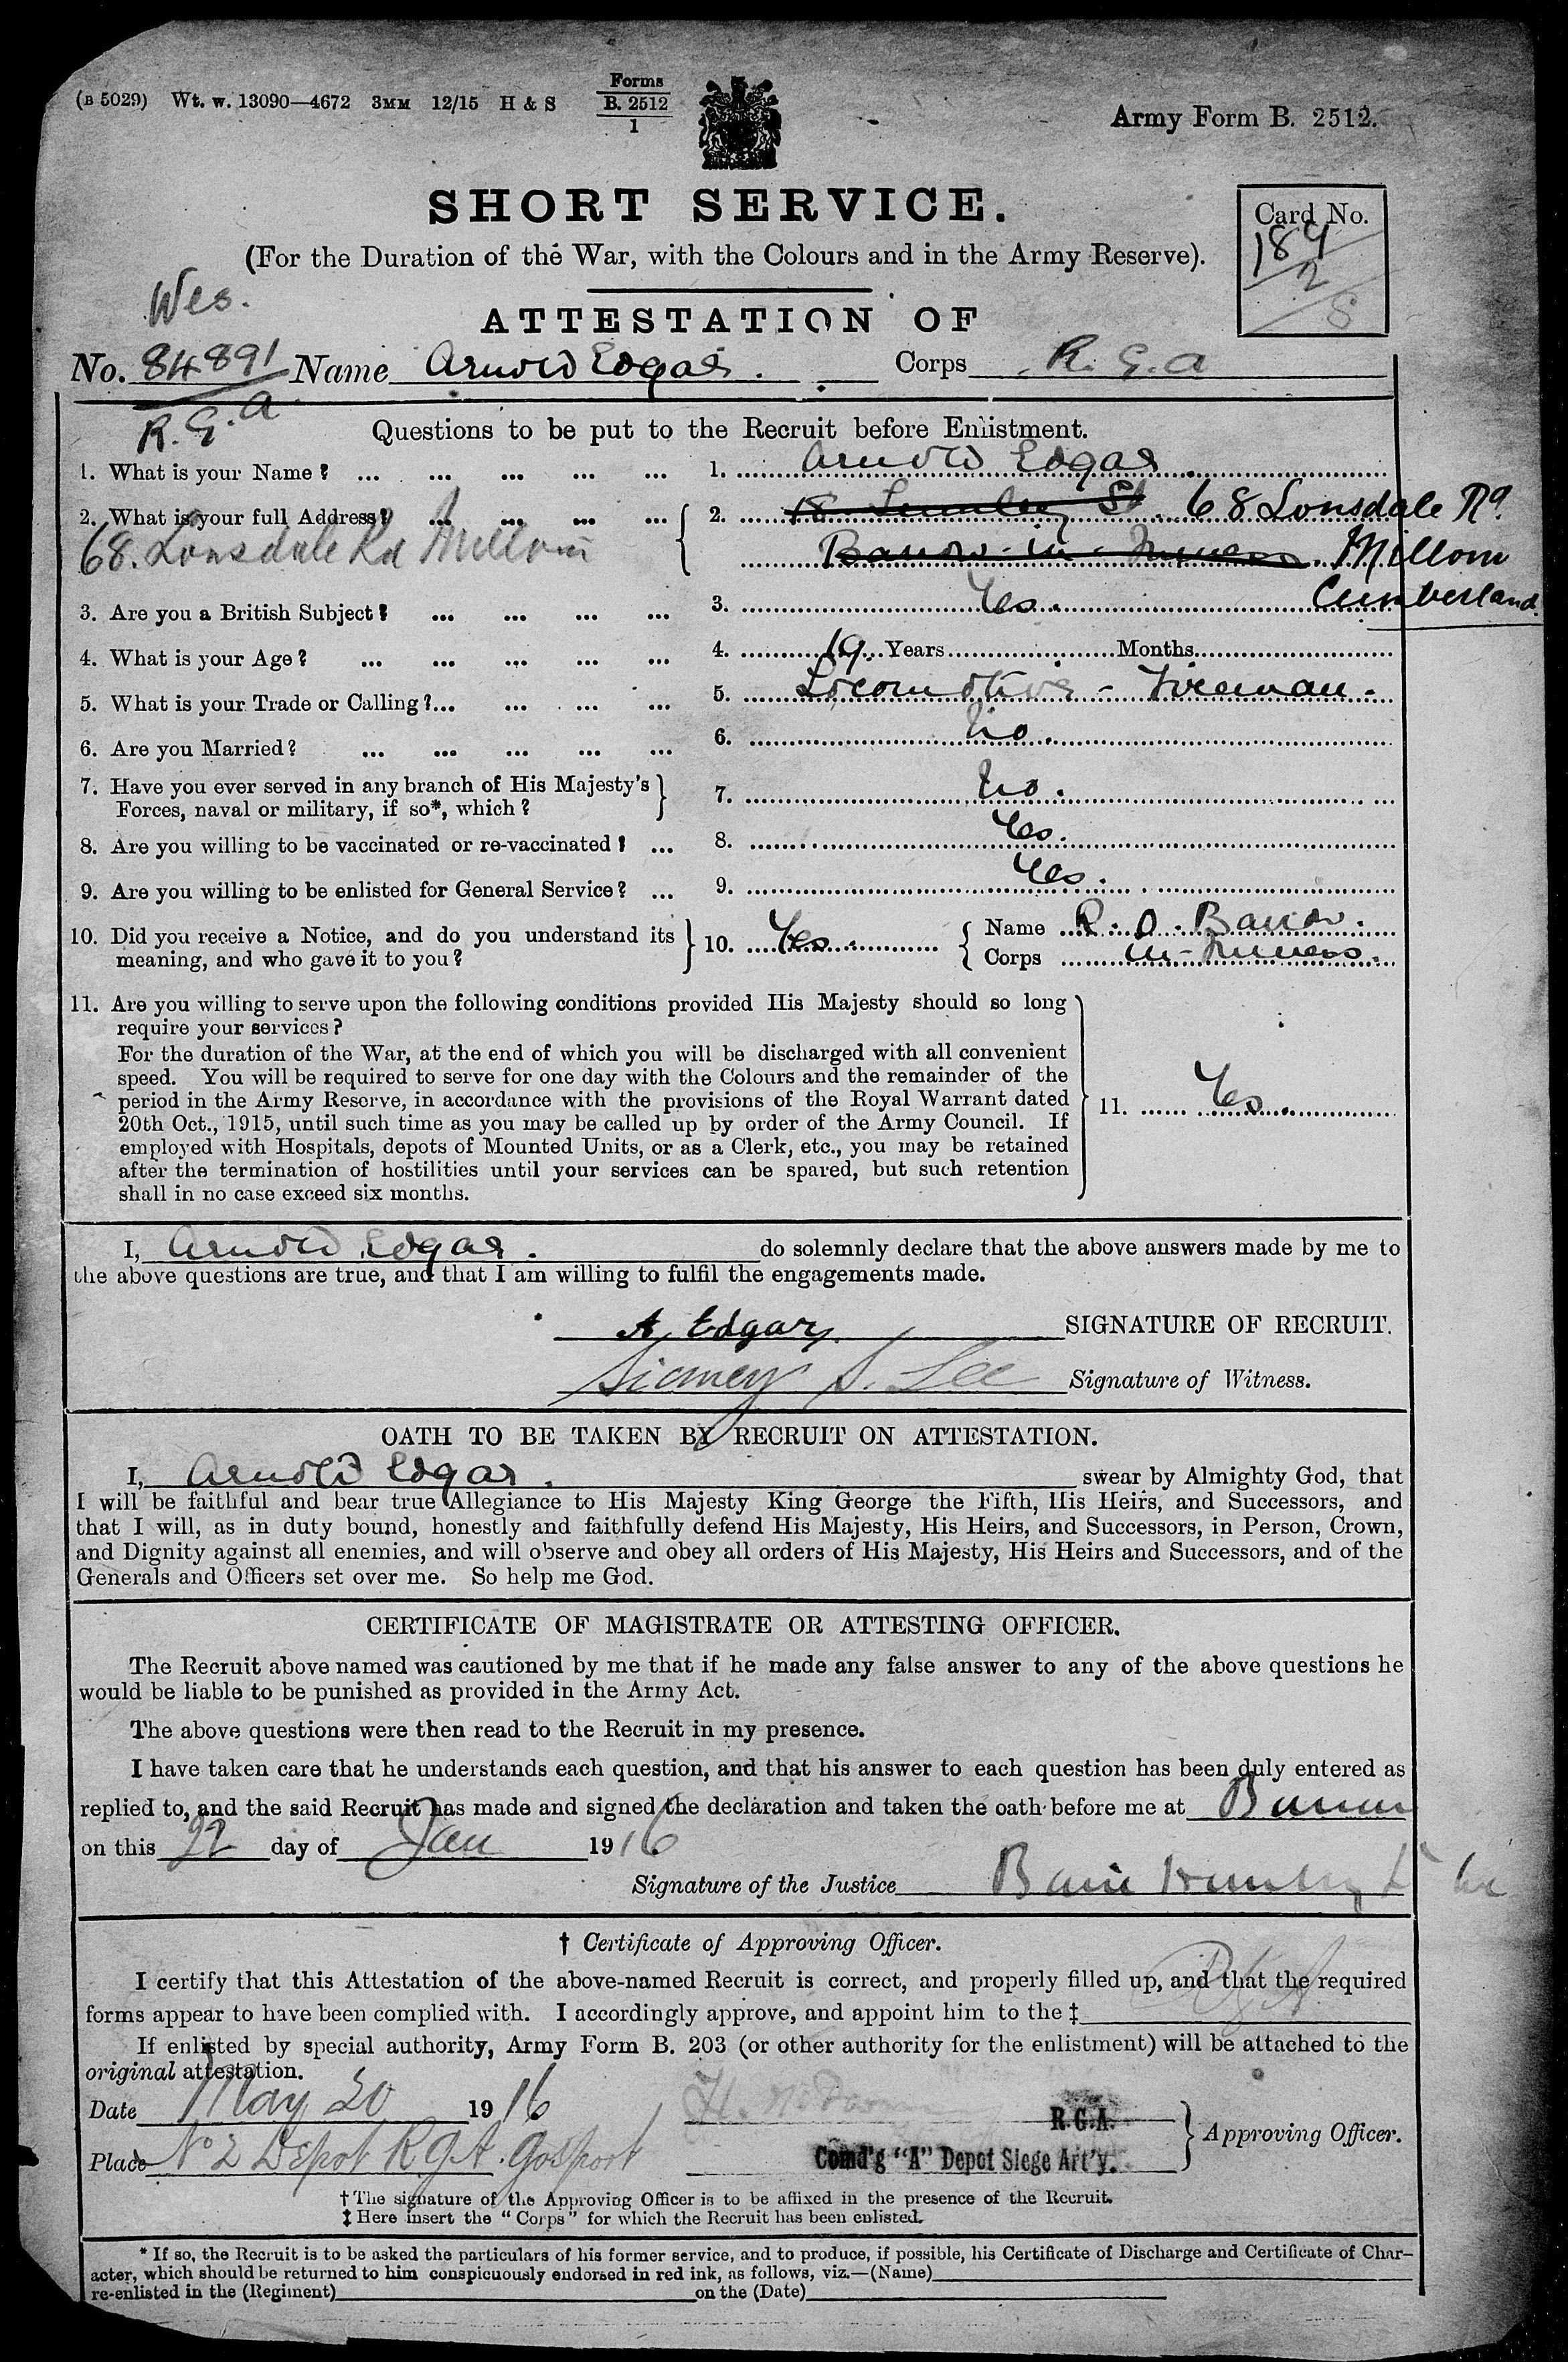 (B 5029) Wt. w. 13090—4672 3MM 12/15 H & S Forms B. 2512 1
Army Form B. 2512.
SHORT SERVICE.
Card No.
184
2
(For the Duration of the War, with the Colours and in the Army Reserve).
Wes.
ATTESTATION OF
No. 84891 Name Arnold Edgar. Corps R.G.A
R.G.A.
Questions to be put to the Recruit before Enlistment.
1. What is your Name? ... ... ... ... ... 1. Arnold Edgar
2. What is your full Address? ... ... ... ... 2. 18 St. 68 Lonsdale Rd.
68. Lonsdale Rd Millom Barrow-in-Furness. Millom
Cumberland.
3. Are you a British Subject? ... ... ... ... 3. Yes.
4. What is your Age? ... ... ... ... ... 4. 19. Years Months
5. What is your Trade or Calling?... ... ... ... 5. Locomotive - Fireman.
6. Are you Married? ... ... ... ... ... 6. No.
7. Have you ever served in any branch of His Majesty's
Forces, naval or military, if so*, which? 7. No.
8. Are you willing to be vaccinated or re-vaccinated? ... 8. Yes.
9. Are you willing to be enlisted for General Service? ... 9. Yes.
10. Did you receive a Notice, and do you understand its
meaning, and who gave it to you? 10. Yes. Name R.O. Barrow.
Corps in-Furness.
11. Are you willing to serve upon the following conditions provided His Majesty should so long
require your services?
For the duration of the War, at the end of which you will be discharged with all convenient
speed. You will be required to serve for one day with the Colours and the remainder of the
period in the Army Reserve, in accordance with the provisions of the Royal Warrant dated
20th Oct., 1915, until such time as you may be called up by order of the Army Council. If
employed with Hospitals, depots of Mounted Units, or as a Clerk, etc., you may be retained
after the termination of hostilities until your services can be spared, but such retention
shall in no case exceed six months.
11. Yes.
I, Arnold Edgar. do solemnly declare that the above answers made by me to
the above questions are true, and that I am willing to fulfil the engagements made.
A. Edgar. SIGNATURE OF RECRUIT.
Sidney S. Lee Signature of Witness.
OATH TO BE TAKEN BY RECRUIT ON ATTESTATION.
I, Arnold Edgar. swear by Almighty God, that
I will be faithful and bear true Allegiance to His Majesty King George the Fifth, His Heirs, and Successors, and
that I will, as in duty bound, honestly and faithfully defend His Majesty, His Heirs, and Successors, in Person, Crown,
and Dignity against all enemies, and will observe and obey all orders of His Majesty, His Heirs and Successors, and of the
Generals and Officers set over me. So help me God.
CERTIFICATE OF MAGISTRATE OR ATTESTING OFFICER.
The Recruit above named was cautioned by me that if he made any false answer to any of the above questions he
would be liable to be punished as provided in the Army Act.
The above questions were then read to the Recruit in my presence.
I have taken care that he understands each question, and that his answer to each question has been duly entered as
replied to, and the said Recruit has made and signed the declaration and taken the oath before me at Barrow
on this 22 day of Jan 1916
Signature of the Justice
† Certificate of Approving Officer.
I certify that this Attestation of the above-named Recruit is correct, and properly filled up, and that the required
forms appear to have been complied with. I accordingly approve, and appoint him to the ‡ RGA
If enlisted by special authority, Army Form B. 203 (or other authority for the enlistment) will be attached to the
original attestation.
Date May 20 1916 R.G.A.
Approving Officer.
Place No 2 Depot RGA. Gosport Comd'g "A" Depot Siege Art'y.
† The signature of the Approving Officer is to be affixed in the presence of the Recruit.
‡ Here insert the "Corps" for which the Recruit has been enlisted.
* If so, the Recruit is to be asked the particulars of his former service, and to produce, if possible, his Certificate of Discharge and Certificate of Char-
acter, which should be returned to him conspicuously endorsed in red ink, as follows, viz.—(Name)
re-enlisted in the (Regiment) on the (Date)